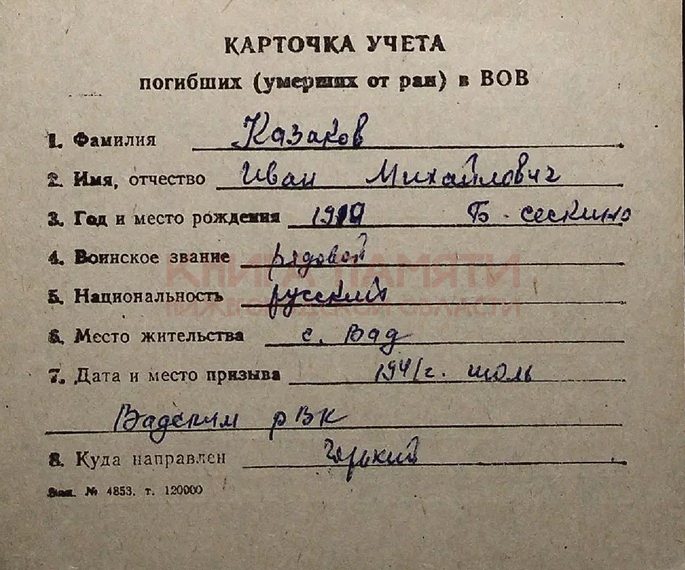 КАРТОЧКА УЧЕТА
погибших (умерших от ран) в ВОВ
1. Фамилия Казаков
2. Имя, отчество Иван Михайлович
3. Год и место рождения 1919 Б-сескино
4. Воинское звание рядовой
КНИГА ПАМЯТИ
НИЖЕГОРОДСКОЙ ОБЛАСТИ
5. Национальность русский
6. Место жительства с. Вад
7. Дата и место призыва 1941г. июль
Вадским рВК
8. Куда направлен Горький
Зак. № 4853. т. 120000